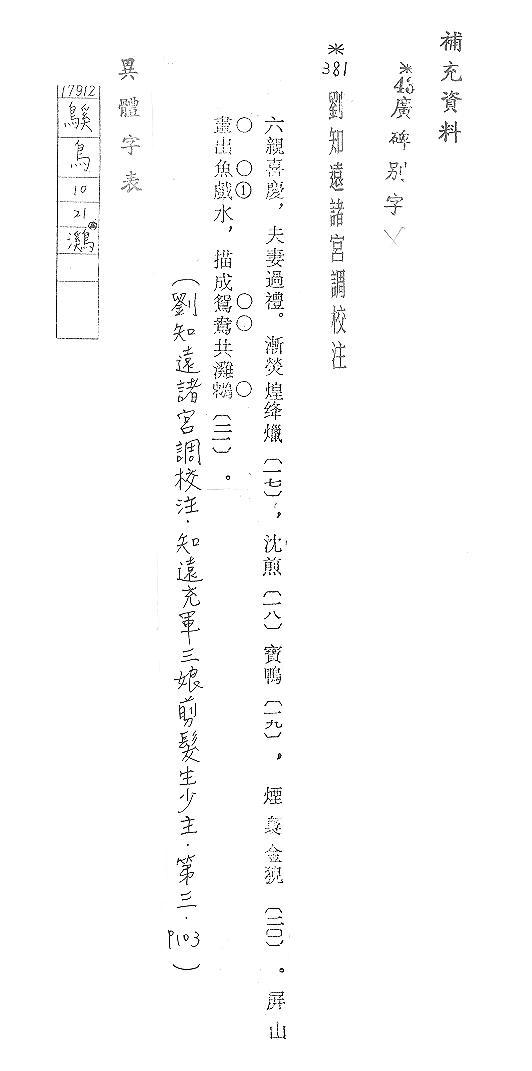 補充資料
*廣碑別字
*381 劉知遠諸宮調校注
六親喜慶，夫妻過禮。漸熒煌絳爉〔一七〕，沈煎〔一八〕寶鴨〔一九〕，煙裊金猊〔二〇〕。屏山
畫出魚戲水，描成鴛鴦共灘鶒〔二一〕。
①
(劉知遠諸宮調校注．知遠充軍三娘剪髮生少主．第三．P103)
異體字表
17912
鳥
10
21